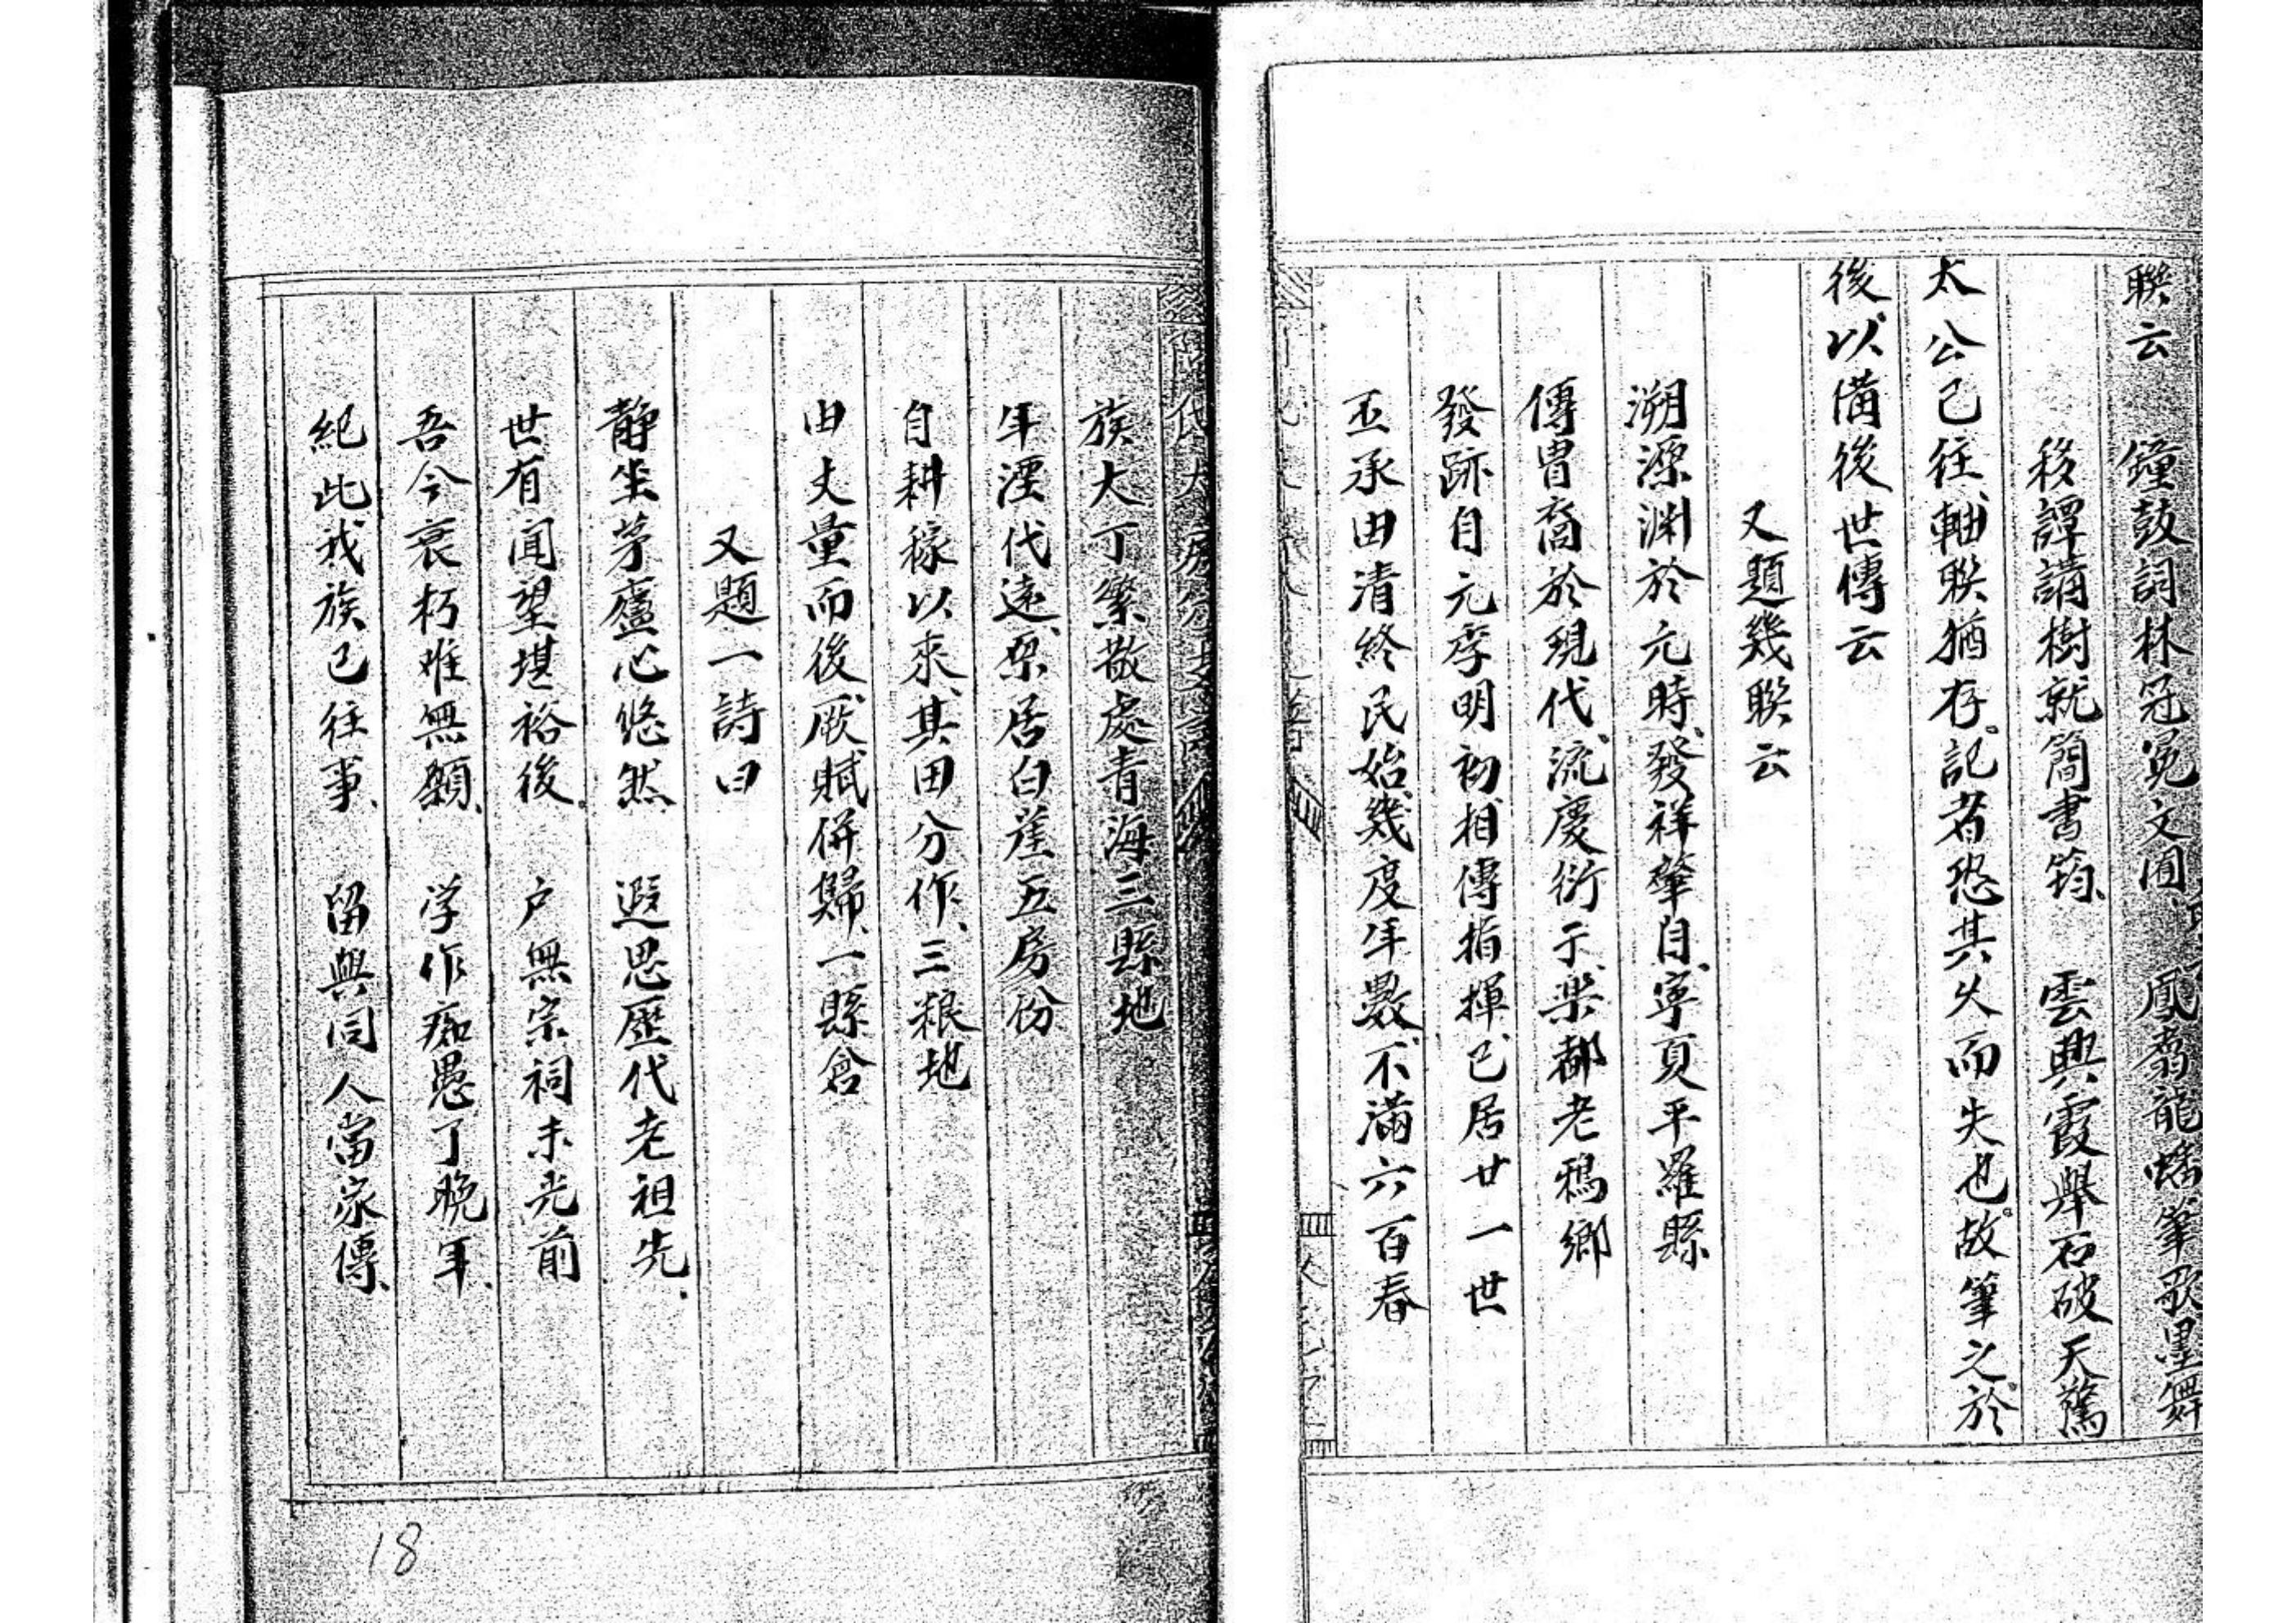 聯云 鐘鼓詞林冠冕文囿 鳳翥龍蟠筆歌墨舞
移譚講樹就簡書筠、 雲興霞舉石破天驚
太公已往、軸聯猶存。記者恐其久而失也。故筆之於
後、以俻後世傳云
又題幾聯云
溯源渊於元時、發祥肇自、寧夏平羅縣
傳冑裔於現代、流慶衍于、樂都老鴉鄉
發跡自元季明初、相傳指揮、已居廿一世
丕承由清終民始、幾度年數、不滿六百春
族大丁繁散處青海三縣地
年湮代遠、原居白崖五房份
自耕稼以來、其田分作、三粮地
由丈量而後、厥賦併歸、一縣倉
又題一詩曰
静坐茅廬心悠然 遐思歷代老祖先、
世有聞望堪裕後。 户無宗祠未光前
吾今衰朽唯無顏、 学作痴愚了晚年、
紀此我族已往事、 留與同人當家傳、
18